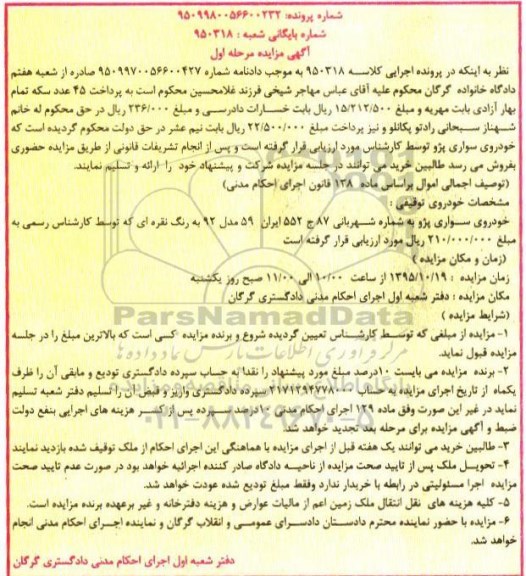 شماره پرونده: ۹۵۰۹۹۸۰۰۵۶۶۰۰۲۳۲
شماره بایگانی شعبه : ۹۵۰۳۱۸
آگهی مزایده مرحله اول
نظر به اینکه در پرونده اجرایی کلاسه ۹۵۰۳۱۸ به موجب دادنامه شماره ۹۵۰۹۹۷۰۰۵۶۶۰۰۴۲۷ صادره از شعبه هفتم
دادگاه خانواده گرگان محکوم علیه آقای عباس مهاجر شیخی فرزند غلامحسین محکوم است به پرداخت ۴۵ عدد سکه تمام
بهار آزادی بابت مهریه و مبلغ ۱۵/۲۱۲/۵۰۰ ریال بابت خسارات دادرسی و مبلغ ۲۳۶/۰۰۰ ریال در حق محکوم له خانم
شهناز سبحانی رادتو یکانلو و نیز پرداخت مبلغ ۲۲/۵۰۰/۰۰۰ ریال بابت نیم عشر در حق دولت محکوم گردیده است که
خودروی سواری پژو توسط کارشناس مورد ارزیابی قرار گرفته است و پس از انجام تشریفات قانونی از طریق مزایده حضوری
بفروش می رسد طالبین خرید می توانند در جلسه مزایده شرکت و پیشنهاد خود را ارائه و تسلیم نمایند.
(توصیف اجمالی اموال براساس ماده ۱۳۸ قانون اجرای احکام مدنی)
مشخصات خودروی توقیفی :
خودروی سواری پژو به شماره شهربانی ۸۷ ج ۵۵۲ ایران ۵۹ مدل ۹۲ به رنگ نقره ای که توسط کارشناس رسمی به
مبلغ ۲۱۰/۰۰۰/۰۰۰ ریال مورد ارزیابی قرار گرفته است
(زمان و مکان مزایده )
زمان مزایده : ۱۳۹۵/۱۰/۱۹ از ساعت ۱۰/۰۰ الی ۱۱/۰۰ صبح روز یکشنبه
مکان مزایده : دفتر شعبه اول اجرای احکام مدنی دادگستری گرگان
(شرایط مزایده )
۱- مزایده از مبلغی که توسط کارشناس تعیین گردیده شروع و برنده مزایده کسی است که بالاترین مبلغ را در جلسه
مزایده قبول نماید.
۲- برنده مزایده می بایست ۱۰درصد مبلغ مورد پیشنهاد را نقدا به حساب سپرده دادگستری تودیع و مابقی آن را ظرف
یکماه از تاریخ اجرای مزایده به حساب ۲۱۷۱۲۹۴۷۷۸۰۰۰ سپرده دادگستری واریز و قبض آن را تسلیم دفتر شعبه تسلیم
نماید در غیر این صورت وفق ماده ۱۲۹ اجرای احکام مدنی ۱۰درصد سپرده پس از کسر هزینه های اجرایی بنفع دولت
ضبط و آگهی مزایده برای مرحله بعد تجدید خواهد شد.
۳- طالبین خرید می توانند یک هفته قبل از اجرای مزایده با هماهنگی این اجرای احکام از ملک توقیف شده بازدید نمایند
۴- تحویل ملک پس از تایید صحت مزایده از ناحیه دادگاه صادر کننده اجرائیه خواهد بود در صورت عدم تایید صحت
مزایده اجرا مسئولیتی در رابطه با خریدار ندارد وفقط مبلغ تودیع شده عودت خواهد شد.
۵- کلیه هزینه های نقل انتقال ملک زمین اعم از مالیات عوارض و هزینه دفترخانه و غیر برعهده برنده مزایده است.
۶- مزایده با حضور نماینده محترم دادستان دادسرای عمومی و انقلاب گرگان و نماینده اجرای احکام مدنی انجام
خواهد شد.
دفتر شعبه اول اجرای احکام مدنی دادگستری گرگان
ParsNamadData